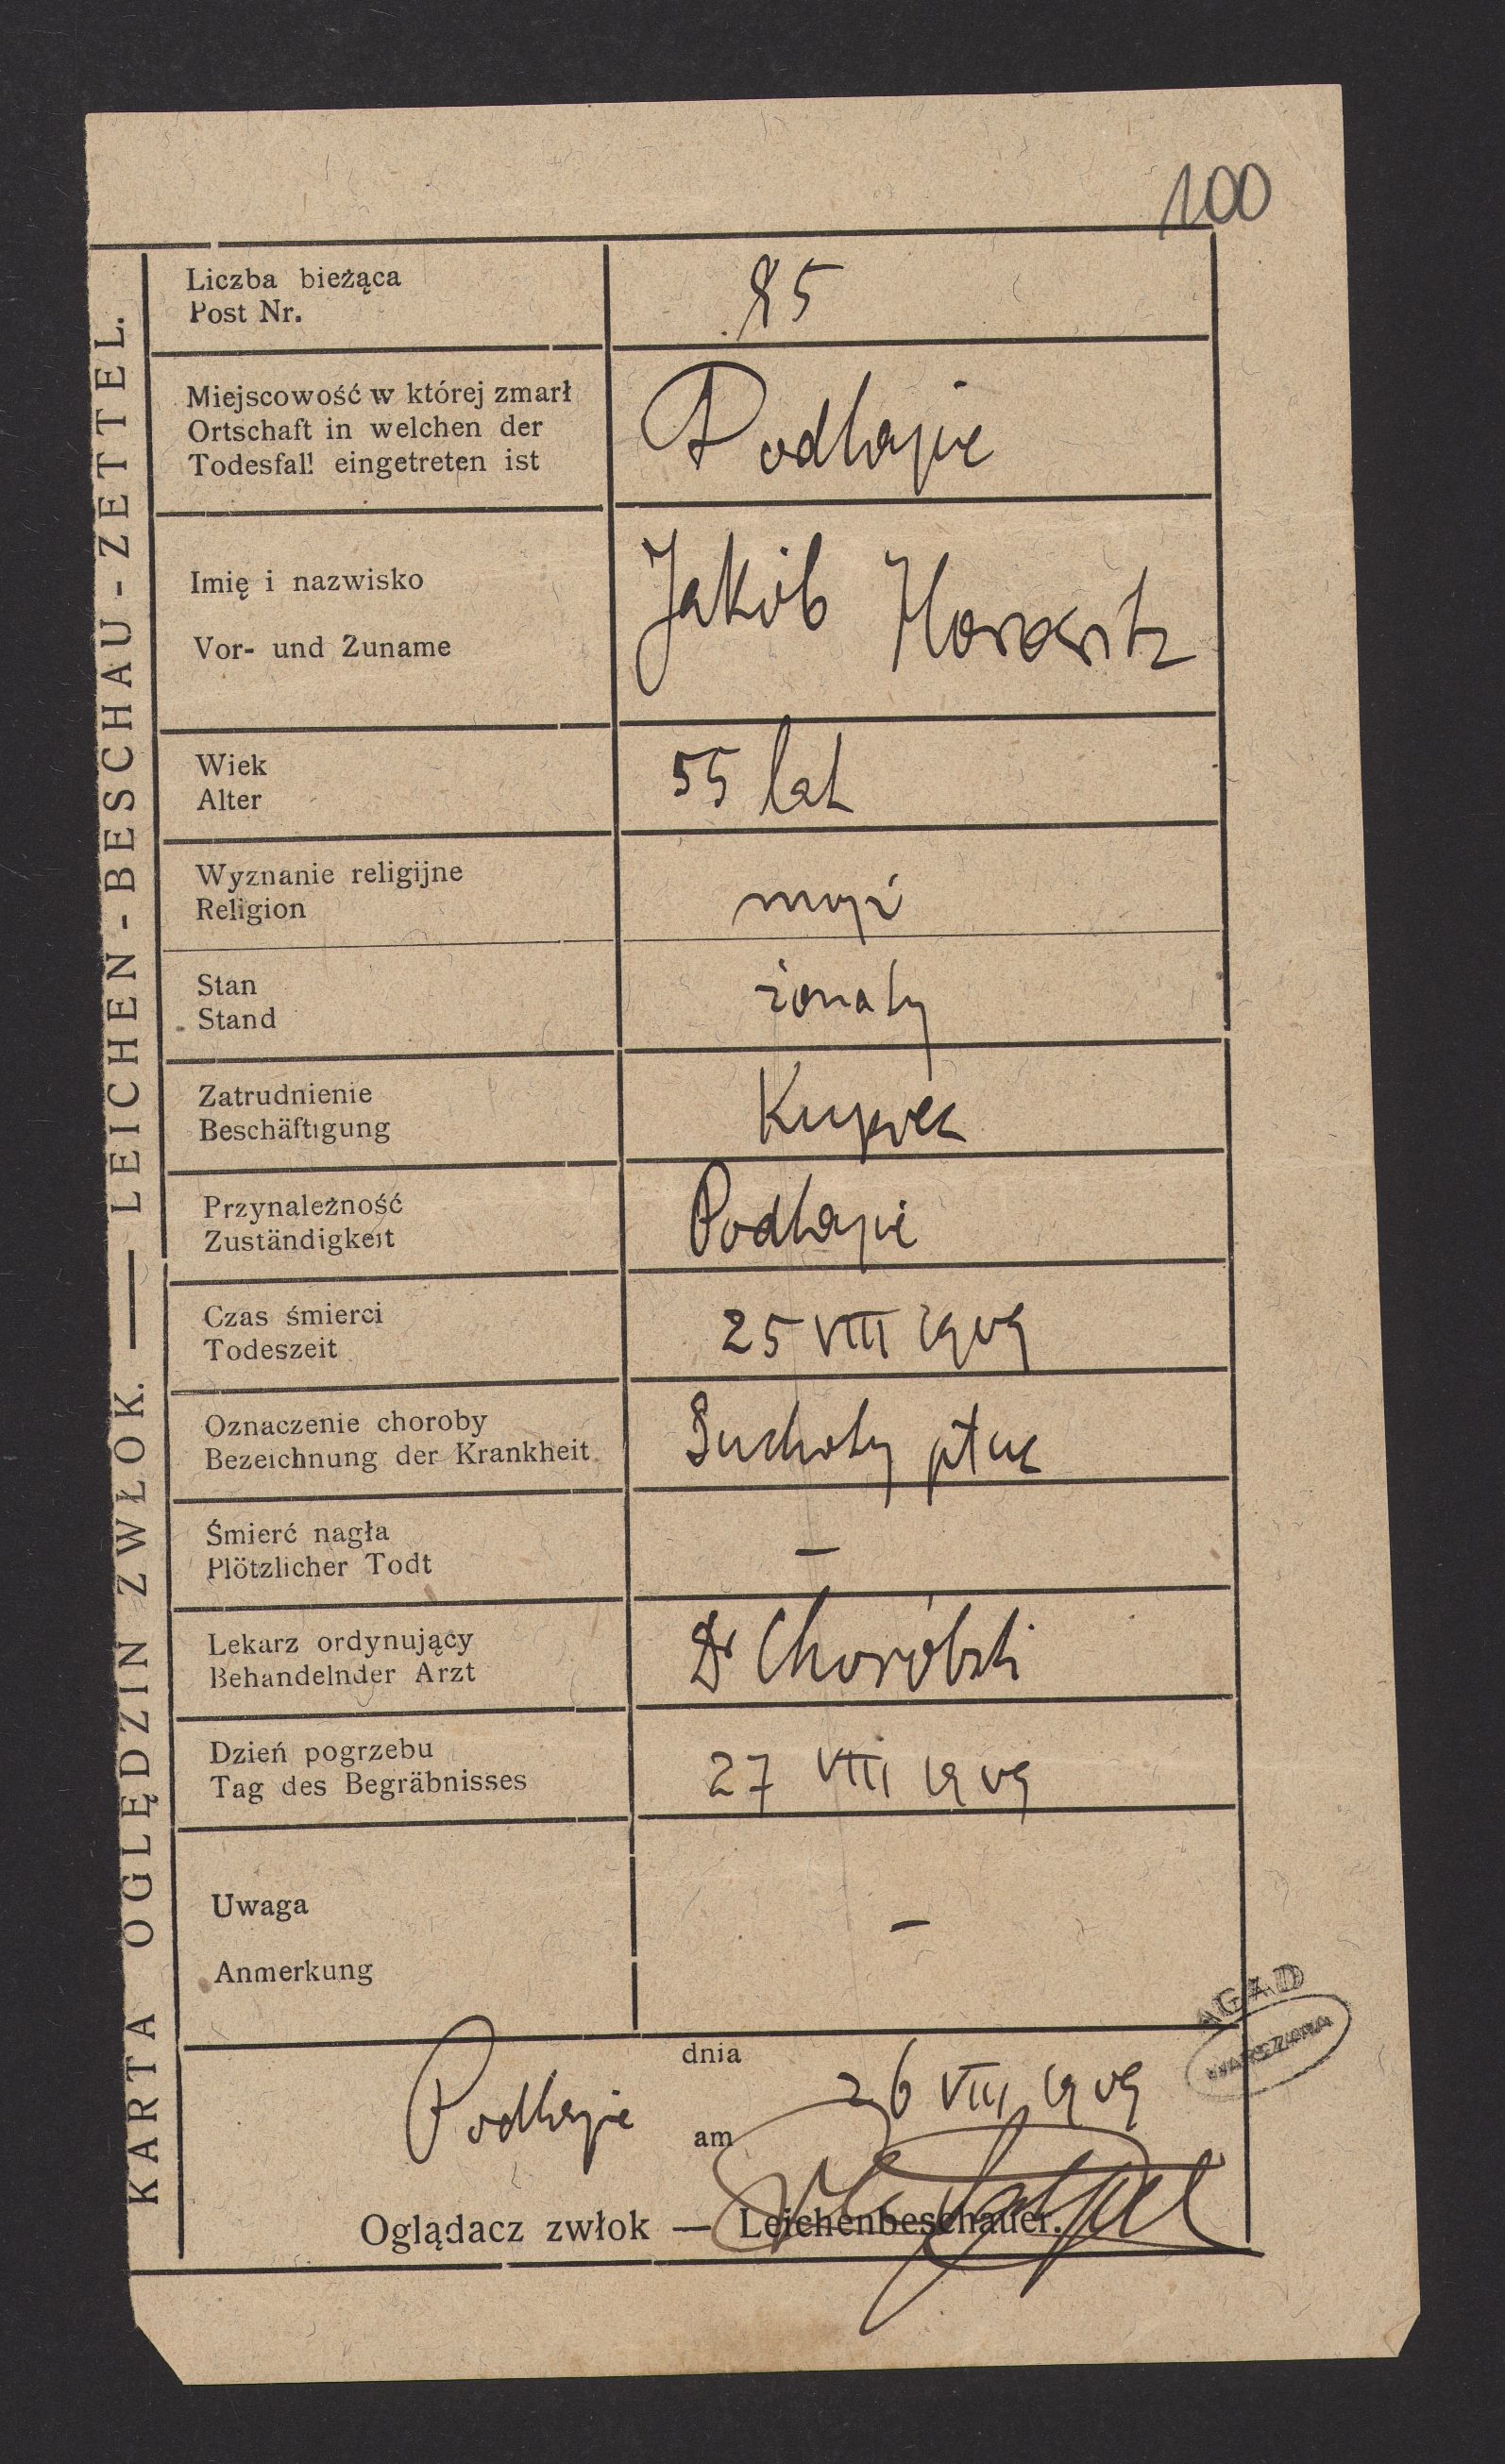 100
KARTA OGLĘDZIN ZWŁOK. — LEICHEN-BESCHAU-ZETTEL.
Liczba bieżąca
Post Nr.
85
Miejscowość w której zmarł
Ortschaft in welchen der
Todesfall eingetreten ist
Podhajce
Imię i nazwisko
Vor- und Zuname
Jakób Horowitz
Wiek
Alter
55 lat
Wyznanie religijne
Religion
mojż
Stan
Stand
żonaty
Zatrudnienie
Beschäftigung
Kupiec
Przynależność
Zuständigkeit
Podhajce
Czas śmierci
Todeszeit
25 VIII 1909
Oznaczenie choroby
Bezeichnung der Krankheit
Suchoty płuc
Śmierć nagła
Plötzlicher Todt
—
Lekarz ordynujący
Behandelnder Arzt
Dr Choróbski
Dzień pogrzebu
Tag des Begräbnisses
27 VIII 1909
Uwaga
Anmerkung
—
Podhajce dnia 26 VIII 1909
am
Oglądacz zwłok — Leichenbeschauer.
AGAD
WARSZAWA